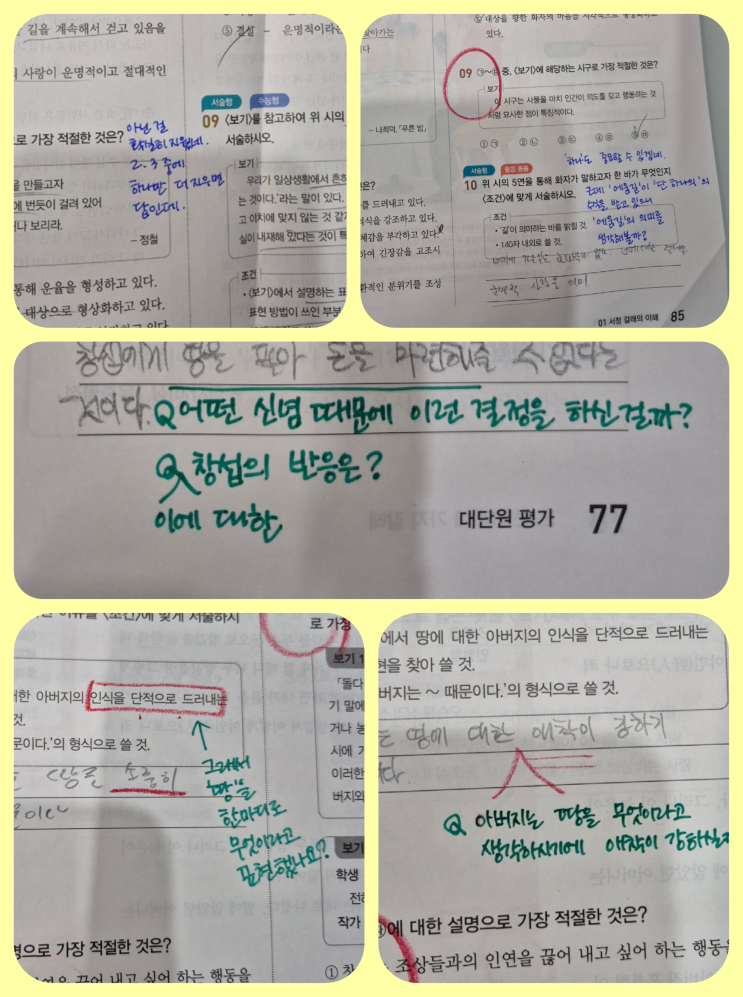 길을 계속해서 걷고 있음을
사랑이 운명적이고 절대적인
로 가장 적절한 것은?
을 만들고자
에 번듯이 걸려 있어
나 보리라.
- 정철
통해 운율을 형성하고 있다.
대상으로 형상화하고 있다.
아닌 걸
확실히 지웠네.
2, 3 중에
하나만 더 지우면
답인데.
⑤ 결실 - 운명적이라는
서술형 수능형
09 <보기>를 참고하여 위 시의
서술하시오.
보기
우리가 일상생활에서 흔히
는 것이다.'라는 말이 있다.
고 이치에 맞지 않는 것 같
실이 내재해 있다는 것이 특
조건
• <보기>에서 설명하는 표
표현 방법이 쓰인 부분
찾아가는
- 나희덕, 「푸른 밤」
은?
를 드러내고 있다.
의식을 강조하고 있다.
체감을 부각하고 있다.
하여 긴장감을 고조시
환적인 분위기를 조성
⑤ 대상을 향한 화자의 마음을 시각적으로 형상화하고
있다.
09 ㉠~㉤ 중, <보기>에 해당하는 시구로 가장 적절한 것은?
보기
이 시구는 사물을 마치 인간이 의도를 갖고 행동하는 것
처럼 묘사한 점이 특징적이다.
① ㉠ ② ㉡ ③ ㉢ ④ ㉣ ⑤ ㉤
'하나'도 중요할 수 있겠네.
서술형
10 위 시의 5연을 통해 화자가 말하고자 한 바가 무엇인지
<조건>에 맞게 서술하시오.
근데 '에움길'이 '단 하나'의
수식을 받고 있으니
'에움길'의 의미를
생각해볼까?
조건
• '길'이 의미하는 바를 밝힐 것.
• 140자 내외로 쓸 것.
사랑을 의미
01 서정 갈래의 이해 85
창섭에게 땅을 팔아 돈을 마련해줄 수 없다는
것이다. Q 어떤 신념 때문에 이런 결정을 하신 걸까?
Q 창섭의 반응은?
이에 대한
대단원 평가 77
<조건>에 맞게 서술하시
한 아버지의 인식을 단적으로 드러내는
것.
문이다.'의 형식으로 쓸 것.
소중히
그래서
'땅'을
한마디로
무엇이라고
표현했나요?
로 가장
보기 1
「돌다
기 말에
거나 농
시에 기
이러한
버지와
보기
학생
전하
작가
명으로 가장 적절한 것은?
연을 끊어 내고 싶어 하는 행동을
에서 땅에 대한 아버지의 인식을 단적으로 드러내는
현을 찾아 쓸 것.
버지는 ~ 때문이다.'의 형식으로 쓸 것.
는 땅에 대한 애착이 강하기
다.
Q 아버지는 땅을 무엇이라고
생각하시기에 애착이 강하실까
에 대한 설명으로 가장 적절한 것은?
조상들과의 인연을 끊어 내고 싶어 하는 행동을